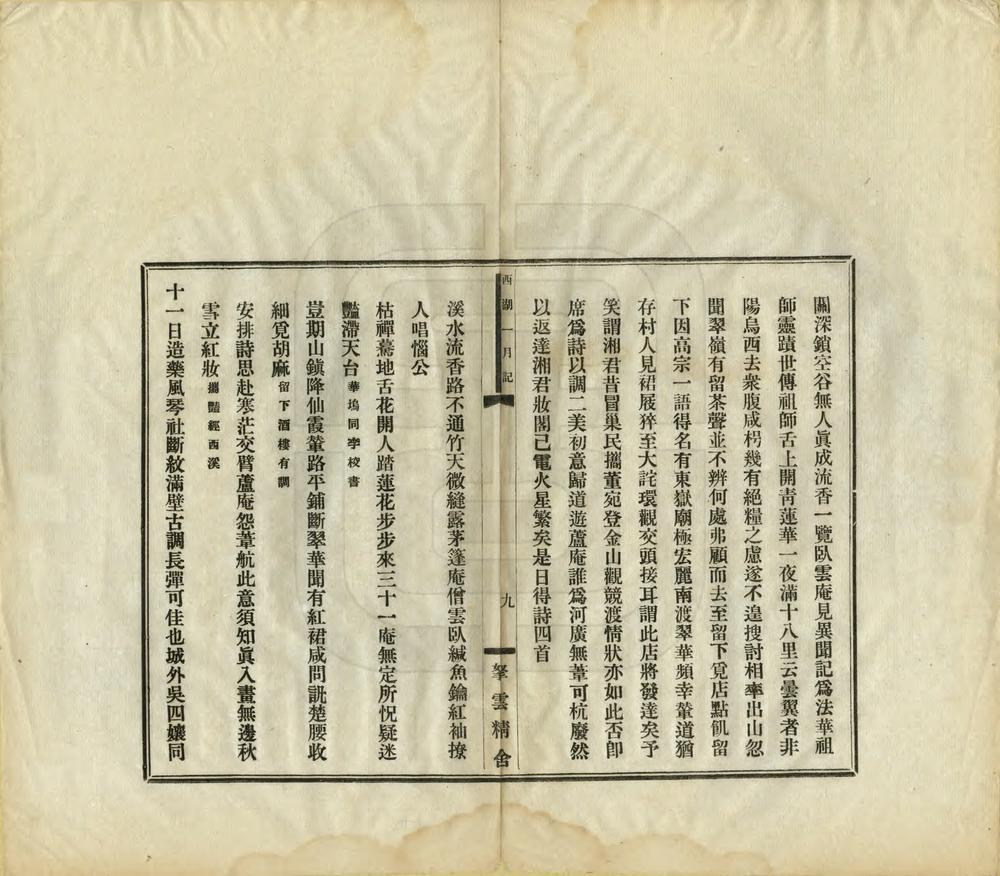 關深鎖空谷無人眞成流香一覽臥雲庵見異聞記爲法華祖
師靈蹟世傳祖師舌上開靑蓮華一夜滿十八里云曇翼者非
陽烏西去衆腹咸枵幾有絕糧之慮遂不遑搜討相率出山忽
聞翠嶺有留茶聲並不辨何處弗顧而去至留下覓店點飢留
下因高宗一語得名有東嶽廟極宏麗南渡翠華頻幸輦道猶
存村人見裙屐猝至大詫環觀交頭接耳謂此店將發達矣予
笑謂湘君昔冒巢民攜董宛登金山觀競渡情狀亦如此否卽
席爲詩以調二美初意歸道遊蘆庵誰爲河廣無葦可杭廢然
以返達湘君妝閣已電火星繁矣是日得詩四首
西湖一月記
九
拏雲精舍
溪水流香路不通竹天微縫露茅篷庵僧雲臥緘魚鑰紅袖撩
人唱惱公
枯禪驀地舌花開人踏蓮花步步來三十一庵無定所怳疑迷
豔滯天台華塢同孛校書
豈期山鎭降仙霞輦路平鋪斷翠華聞有紅裙咸問訊楚腰收
細覓胡麻留下酒樓有調
安排詩思赴寒茫交臂蘆庵怨葦航此意須知眞入畫無邊秋
雪立紅妝攜豔經西溪
十一日造藥風琴社斷紋滿壁古調長彈可佳也城外吳四孃同